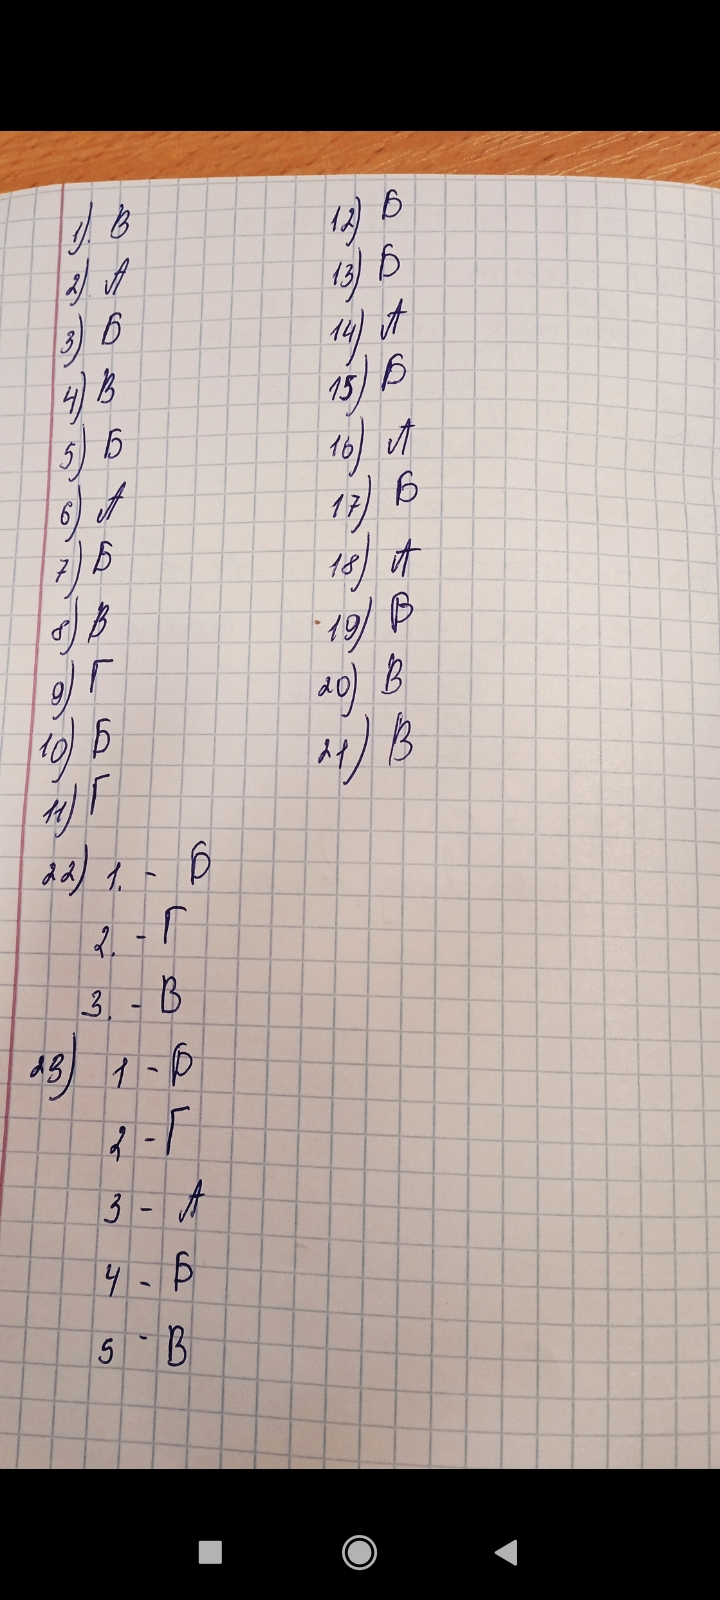 1). В
2) А
3) Б
4) В
5) Б
6) А
7) Б
8) В
9) Г
10) Б
11) Г
12) Б
13) Б
14) А
15) Б
16) А
17) Б
18) А
19) В
20) В
21) В
22) 1. - Б
2. - Г
3. - В
23) 1 - Б
2 - Г
3 - А
4 - Б
5 - В